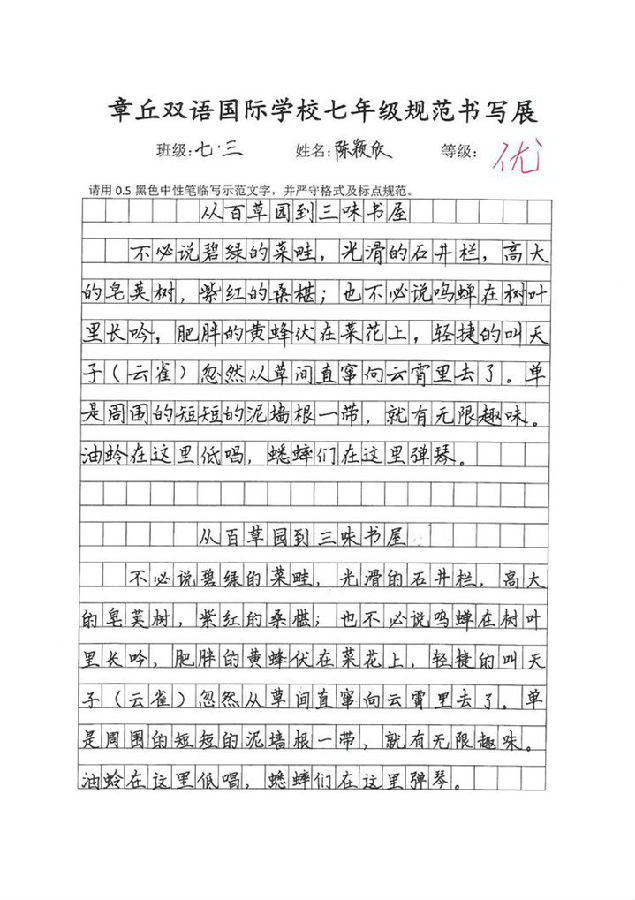 章丘双语国际学校七年级规范书写展
班级:七·三 姓名:陈颖欣 等级:优
请用 0.5 黑色中性笔临写示范文字，并严守格式及标点规范。
从百草园到三味书屋
不必说碧绿的菜畦，光滑的石井栏，高大
的皂荚树，紫红的桑椹；也不必说鸣蝉在树叶
里长吟，肥胖的黄蜂伏在菜花上，轻捷的叫天
子（云雀）忽然从草间直窜向云霄里去了。单
是周围的短短的泥墙根一带，就有无限趣味。
油蛉在这里低唱，蟋蟀们在这里弹琴。
从百草园到三味书屋
不必说碧绿的菜畦，光滑的石井栏，高大
的皂荚树，紫红的桑椹；也不必说鸣蝉在树叶
里长吟，肥胖的黄蜂伏在菜花上，轻捷的叫天
子（云雀）忽然从草间直窜向云霄里去了。单
是周围的短短的泥墙根一带，就有无限趣味。
油蛉在这里低唱，蟋蟀们在这里弹琴。